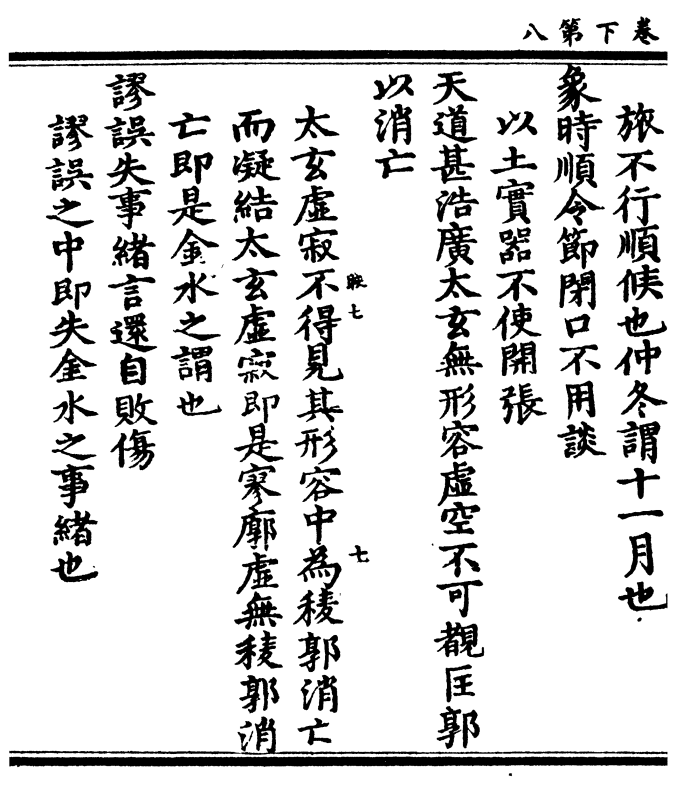 卷下第八
旅不行順候也仲冬謂十一月也
象時順令節閉口不用談
以土實器不使開張
天道甚浩廣太玄無形容虛空不可覩匡郭
以消亡
太玄虛寂不得見其形容中為稜郭消亡
七
七
而凝結太玄虛寂即是寥廓虛無稜郭消
亡即是金水之謂也
謬誤失事緒言還自敗傷
謬誤之中即失金水之事緒也